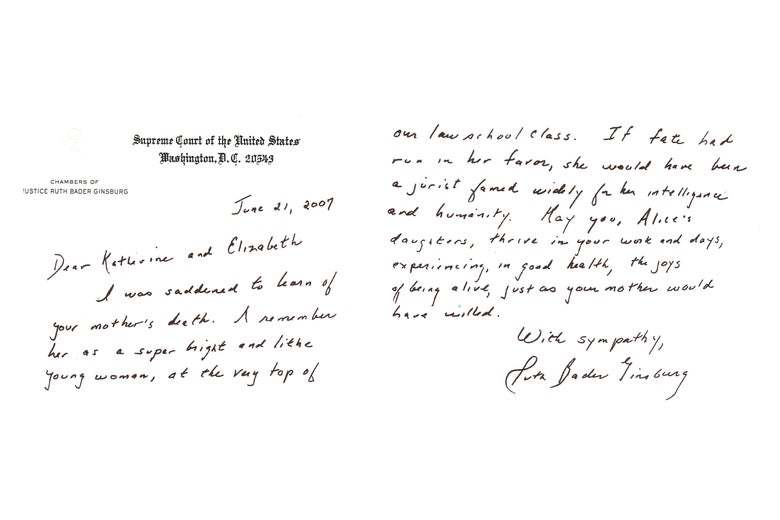 Supreme Court of the United States
Washington, D. C. 20543
CHAMBERS OF
JUSTICE RUTH BADER GINSBURG
June 21, 2007
Dear Katherine and Elizabeth
I was saddened to learn of
your mother's death. I remember
her as a super bright and lithe
young woman, at the very top of
our law school class. If fate had
run in her favor, she would have been
a jurist famed widely for her intelligence
and humanity. May you, Alice's
daughters, thrive in your work and days,
experiencing, in good health, the joys
of being alive, just as your mother would
have willed.
With sympathy,
Ruth Bader Ginsburg